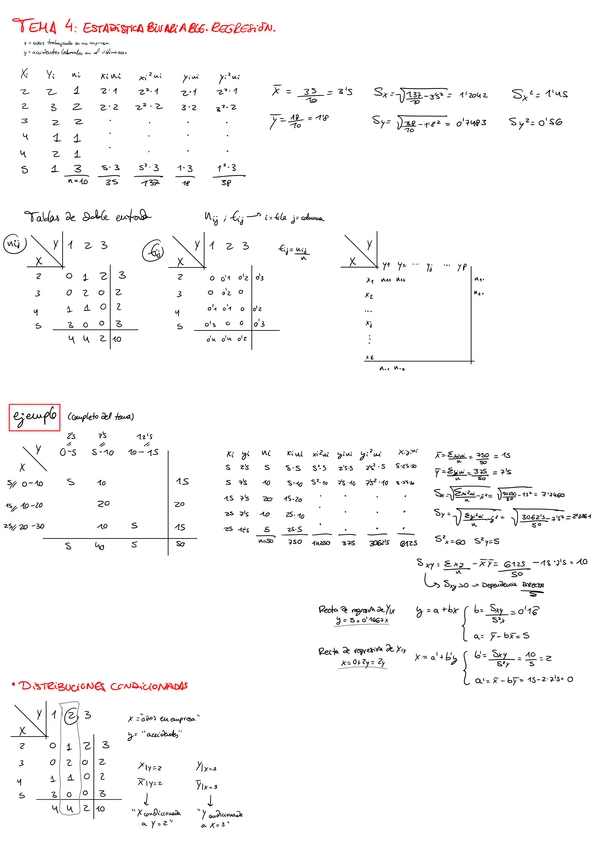 TEMA 4: ESTADÍSTICA BIVARIABLE. REGRESIÓN.
x = años trabajando en una empresa
y = accidentes laborales en el
Xi Yi ni xini xi²ni yini yi²ni
2 2 1 2·1 2²·1 2·1 2²·1
2 3 2 2·2 2²·2 3·2 3²·2
3 2 2 · · · ·
4 1 1 · · · ·
4 2 1 · · · ·
5 1 3 5·3 5²·3 1·3 1²·3
n=10 35 137 18 38
x̄ = 35/10 = 3'5
Sx = √137/10 - 3'5² = 1'2042
Sx² = 1'45
ȳ = 18/10 = 1'8
Sy = √38/10 - 1'8² = 0'7483
Sy² = 0'56
Tablas de doble entrada
nij ; fij → i = fila j = columna
nij
Y 1 2 3
X
2 0 1 2 3
3 0 2 0 2
4 1 1 0 2
5 3 0 0 3
4 4 2 10
fij
Y 1 2 3
X
2 0 0'1 0'2 0'3
3 0 0'2 0
4 0'1 0'1 0 0'2
5 0'3 0 0 0'3
0'4 0'4 0'2
fij = nij/n
Y
X
y1 y2 ... yj ... yp
x1 n11 n12 n1.
x2 n2.
...
xj
⋮
n.1 n.2
ejemplo (completo del tema)
2'5 7'5 12'5
Y 0-5 5-10 10-15
X
5// 0-10 5 10 15
15// 10-20 20 20
25// 20-30 10 5 15
5 40 5 50
xi yi ni xini xi²ni yini yi²ni xiyini
5 2'5 5 5·5 5²·5 2'5·5 2'5²·5 5·2'5·5
5 7'5 10 5·10 5²·10 7'5·10 7'5²·10
15 7'5 20 15·20 · · · ·
25 7'5 10 25·10 · · · ·
25 12'5 5 25·5 · · · ·
n=50 750 14250 375 3062'5 6125
x̄ = Σxini/n = 750/50 = 15
ȳ = Σyini/n = 375/50 = 7'5
Sx = √Σxi²ni/n - x̄² = √14250/50 - 15² = 7'7460
Sy = √Σyi²ni/n - ȳ² = √3062'5/50 - 7'5² = 2'2361
S²x = 60 S²y = 5
Sxy = Σxy/n - x̄ȳ = 6125/50 - 15·7'5 = 10
↳ Sxy > 0 → Dependencia directa
Recta de regresión de Y/X
y = 5 + 0'1667x
y = a + bx
b = Sxy/S²x = 0'16
a = ȳ - bx̄ = 5
Recta de regresión de X/Y
x = 0 + 2y = 2y
x = a' + b'y
b' = Sxy/S²y = 10/5 = 2
a' = x̄ - b'ȳ = 15 - 2·7'5 = 0
• DISTRIBUCIONES CONDICIONADAS
Y 1 2 3
X
2 0 1 2 3
3 0 2 0 2
4 1 1 0 2
5 3 0 0 3
4 4 2 10
x = "años en empresa"
y = "accidentes"
X/y=2 Y/x=3
x̄/y=2 ȳ/x=3
↓ ↓
"X condicionada a Y=2"
"Y condicionada a X=3"